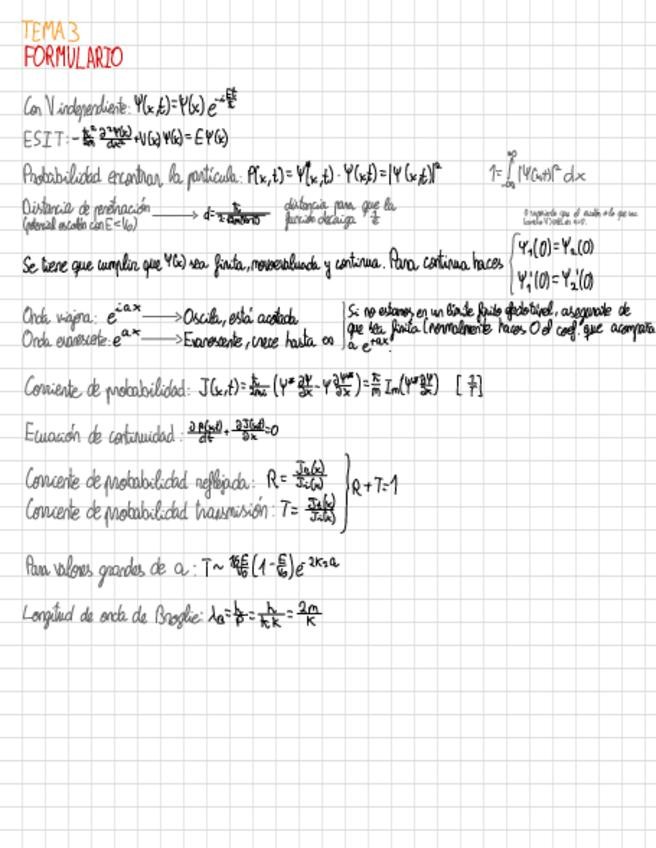 TEMA 3
FORMULARIO
Con V independiente: Ψ(x,t)=Ψ(x) e^{-iEt/ħ}
ESIT: -ħ²/2m ∂²Ψ(x)/dx² + V(x)Ψ(x) = EΨ(x)
Probabilidad encontrar la partícula: P(x,t)=Ψ*(x,t)·Ψ(x,t)=|Ψ(x,t)|² 1=∫_{-∞}^{∞}|Ψ(x,t)|² dx
Distancia de penetración → d= distancia para que la
(potencial escalón con E<V₀) función decaiga
Se tiene que cumplir que Ψ(x) sea finita, monoevaluada y continua. Para continua haces { Ψ₁(0)=Ψ₂(0)
Ψ₁'(0)=Ψ₂'(0)
Onda viajera: e^{iax} → Oscila, está acotada
Onda evanescente: e^{ax} → Evanescente, crece hasta ∞
Si no estamos en un límite finito asegurate de
que sea finita (normalmente haces 0 el coef. que acompaña
a e^{+ax}.
Corriente de probabilidad: J(x,t)=ħ/2mi (Ψ* ∂Ψ/∂x - Ψ ∂Ψ*/∂x)=ħ/m Im(Ψ* ∂Ψ/∂x) [1/T]
Ecuación de continuidad: ∂P(x,t)/dt + ∂J(x,t)/∂x=0
Corriente de probabilidad reflejada: R= J_R(x)/J_i(x)
Corriente de probabilidad trasmisión: T= J_t(x)/J_i(x) } R+T=1
Para valores grandes de a: T~ 16E/V₀ (1-E/V₀)e^{-2K₂a}
Longitud de onda de Broglie: λ_B=h/p=h/ħk=2π/K